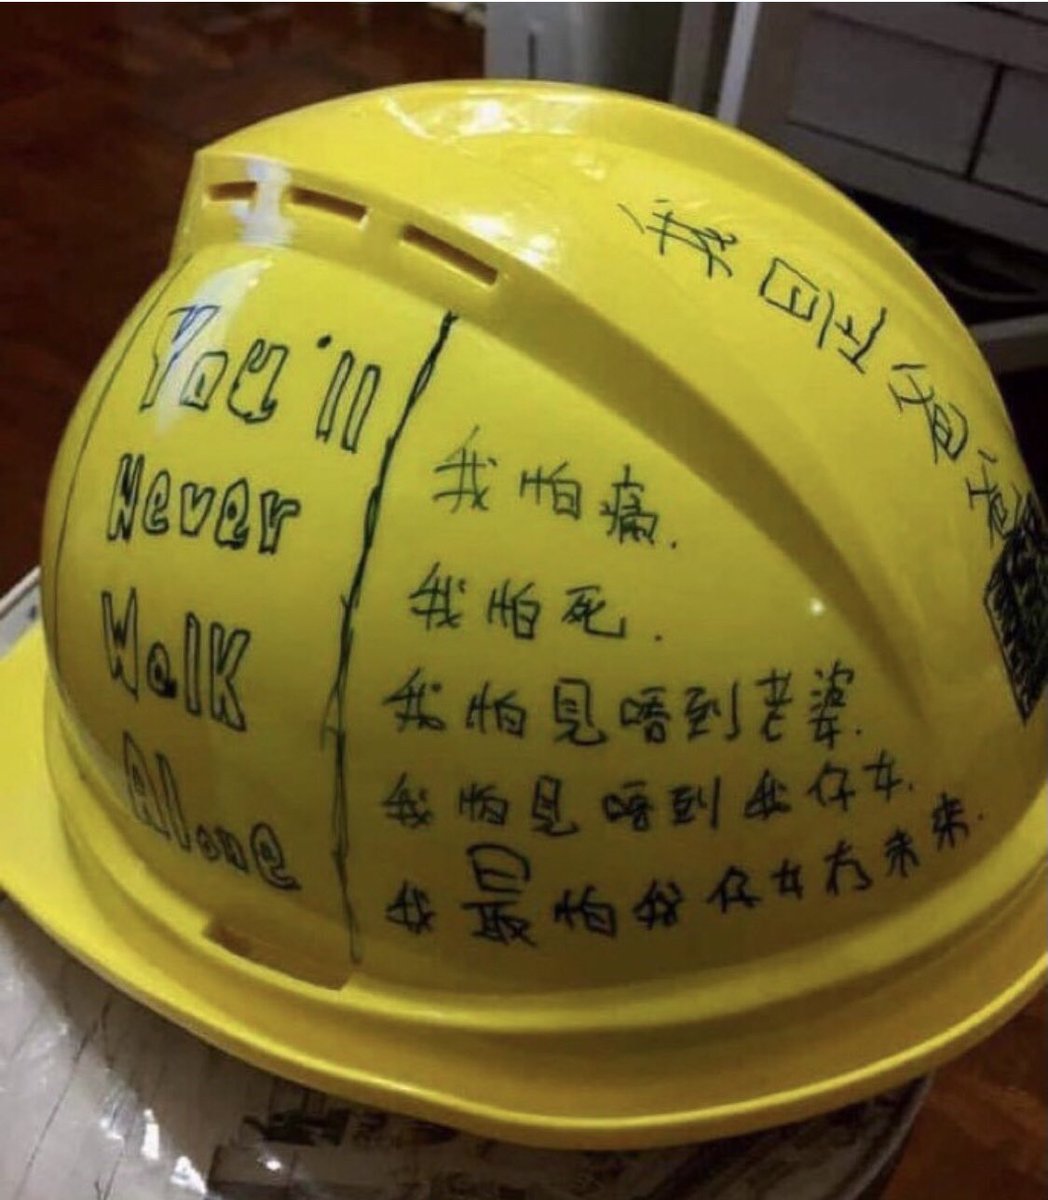 You'll
Never
Walk
Alone
我怕痛.
我怕死.
我怕見唔到老婆.
我怕見唔到我仔女.
我最怕我仔女冇未來.